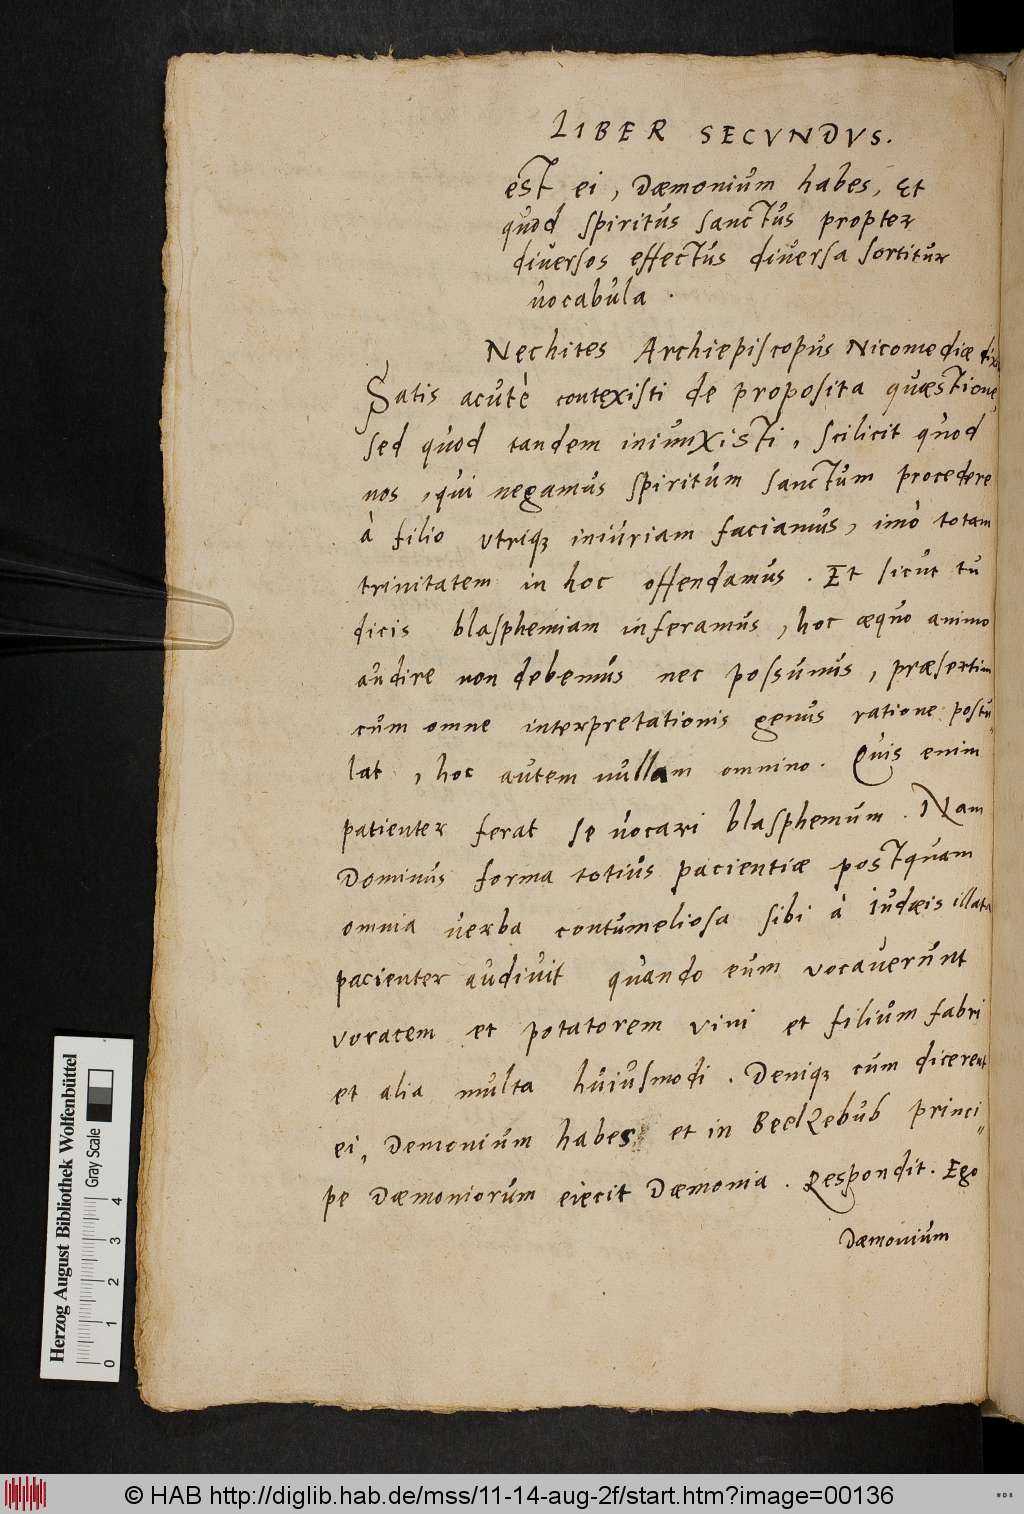 LIBER SECVNDVS.
est ei, Dæmonium habes, Et
quod spiritus sanctus propter
diuersos effectus diuersa sortitur
uocabula .
Nechites Archiepiscopus Nicomediæ
Satis acutè contexisti de proposita quæstione
sed quod tandem iniunxisti, scilicit quod
nos, qui negamus spiritum sanctum procedere
à filio vtriqꝫ iniuriam faciamus, imò totam
trinitatem in hoc offendamus . Et sicut tu
dicis blasphemiam inferamus, hoc æquo animo
audire non debemus nec possumus, præsertim
cùm omne interpretationis genus ratione postu
lat , hoc autem nullam omnino. Quis enim
patienter ferat se uocari blasphemum. Nam
Dominus forma totius pacientiæ postquam
omnia uerba contumeliosa sibi à Iudæis illata
pacienter audiuit quando eum vocauerunt
voracem et potatorem vini et filium fabri
et alia multa huiusmodi . Deniqꝫ cum dicerent
ei, Demonium habes et in Beelzebub princi〃
pe Dæmoniorum eiecit Dæmonia . Respondit. Ego
Dæmonium
Herzog August Bibliothek Wolfenbüttel
Gray Scale
0 1 2 3 4
© HAB http://diglib.hab.de/mss/11-14-aug-2f/start.htm?image=00136